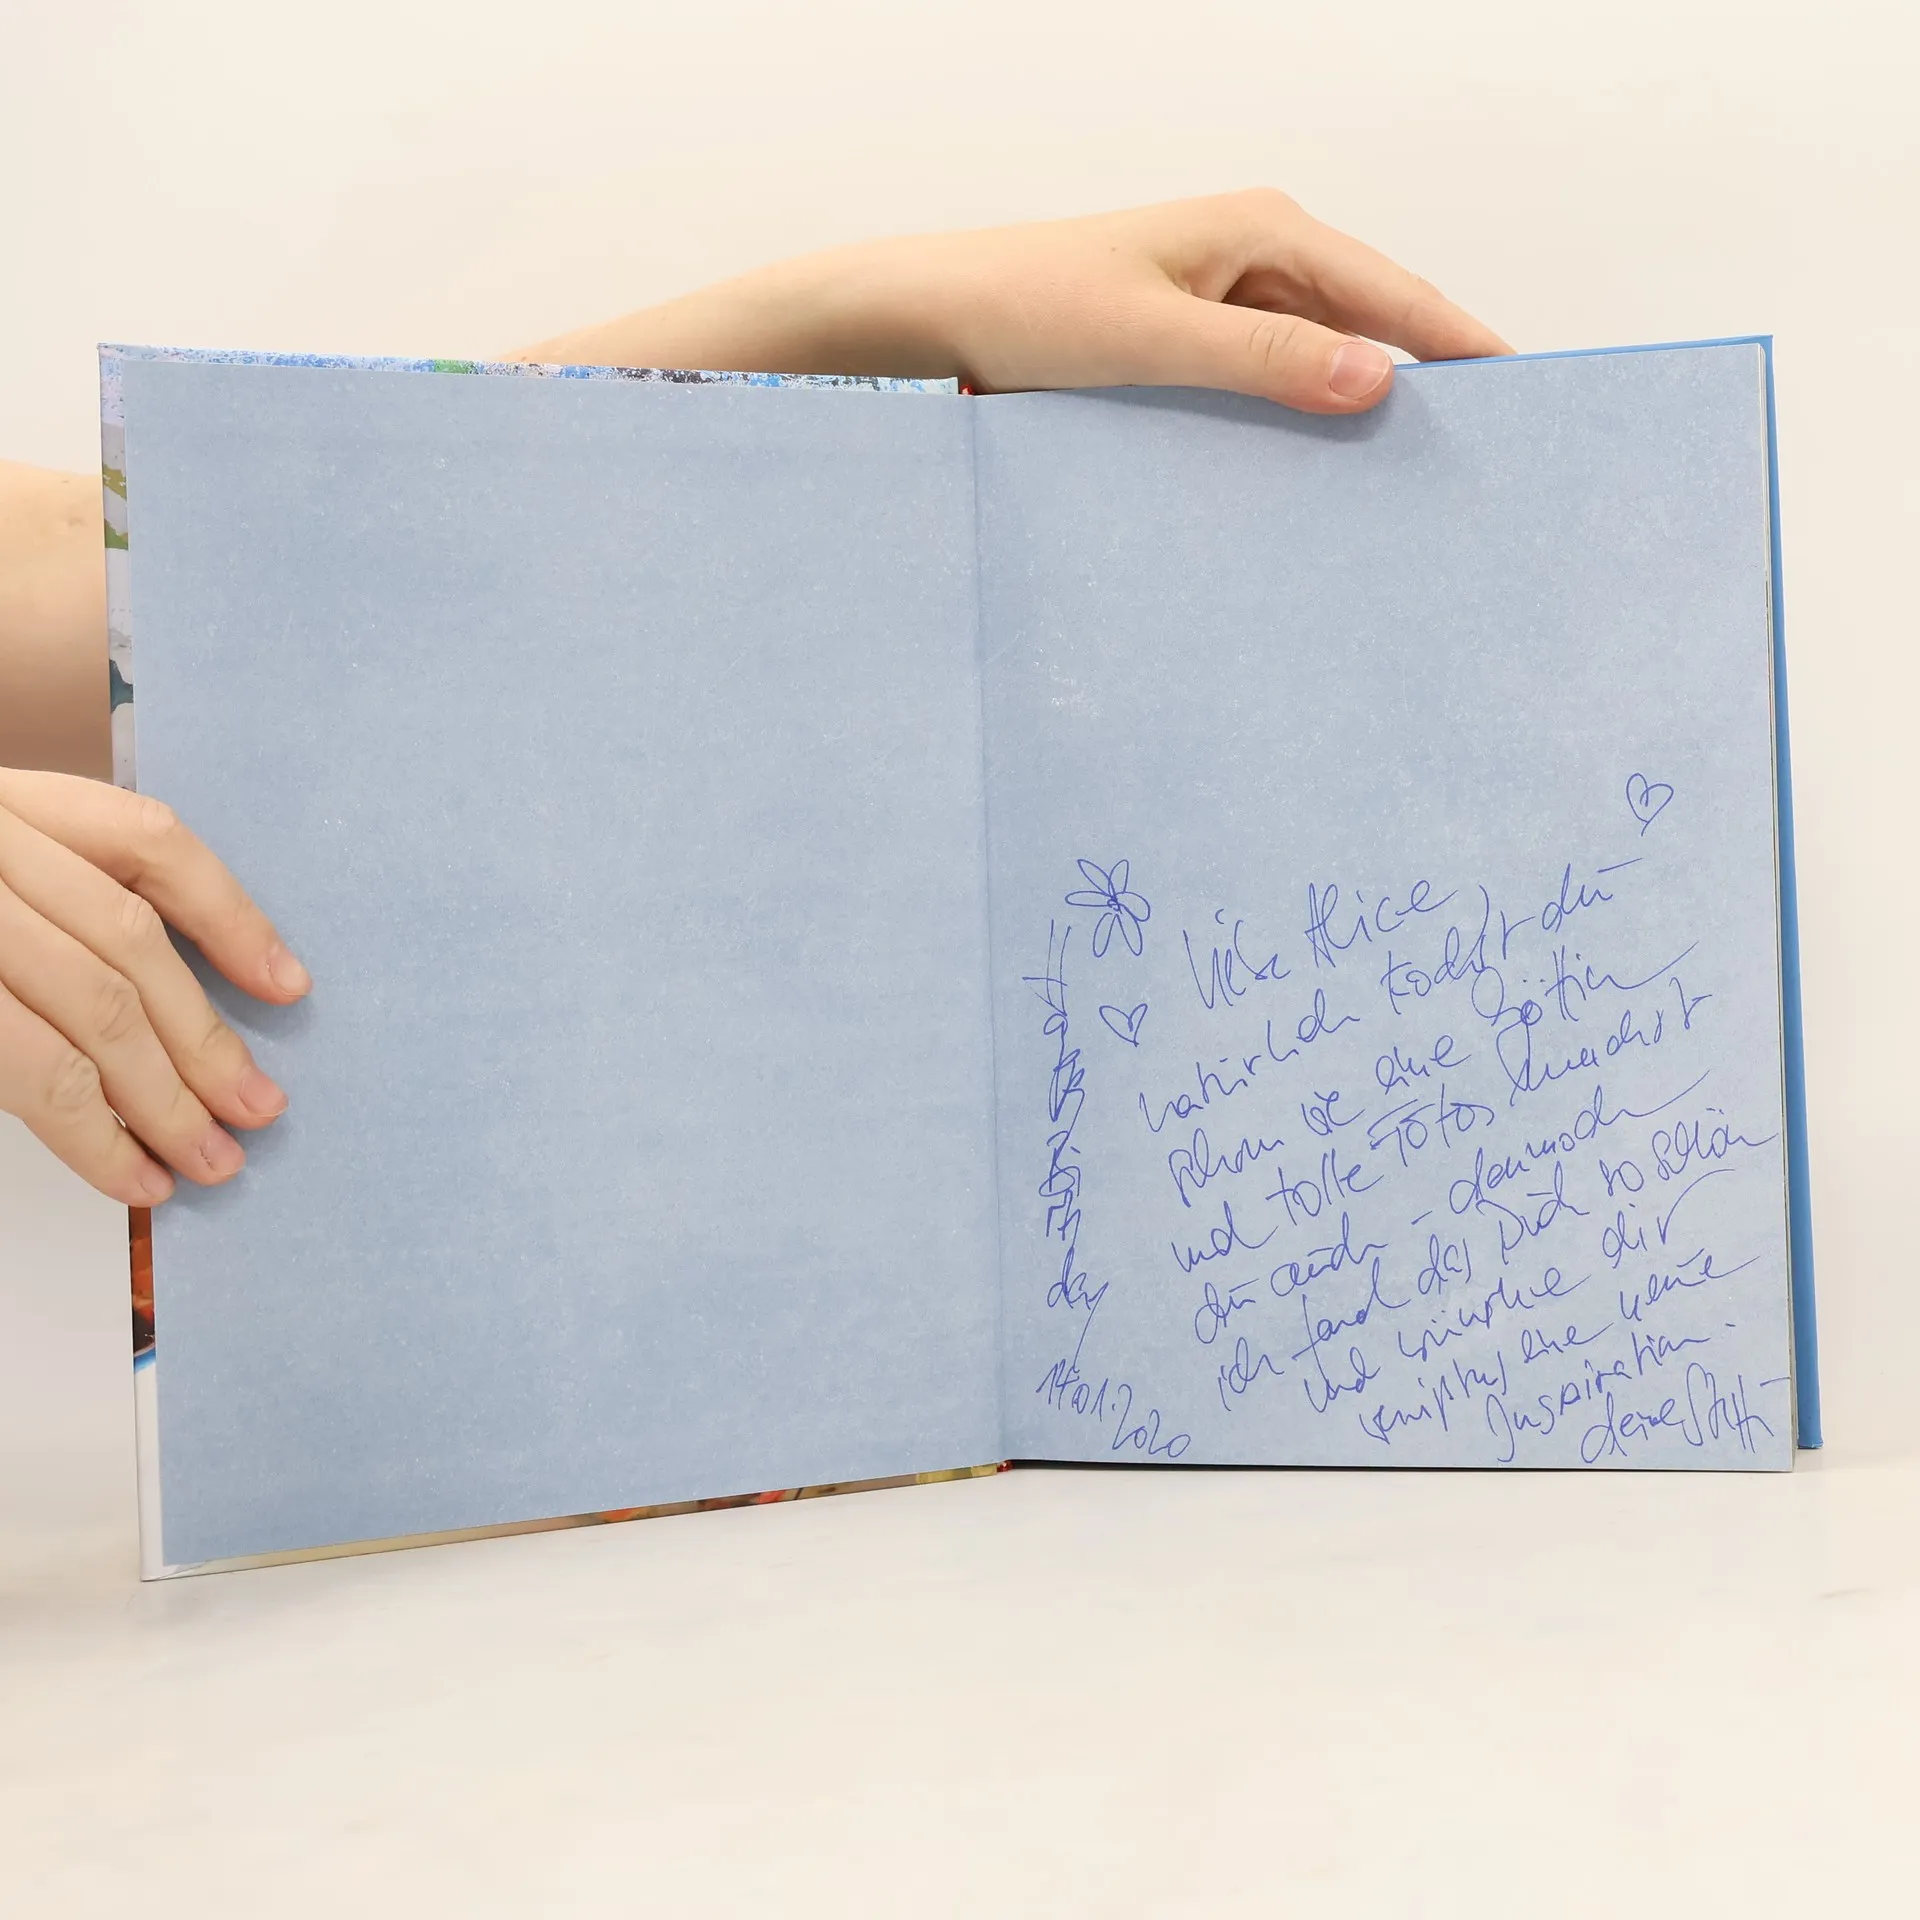 Liebe Alice
natürlich kochst du
schon wie eine Göttin
und tolle Fotos machst
du auch – dennoch
ich fand das Buch so schön
und wünsche dir
eine neue
Inspiration.
deine Steffi
Happy Birthday
14.01.2020